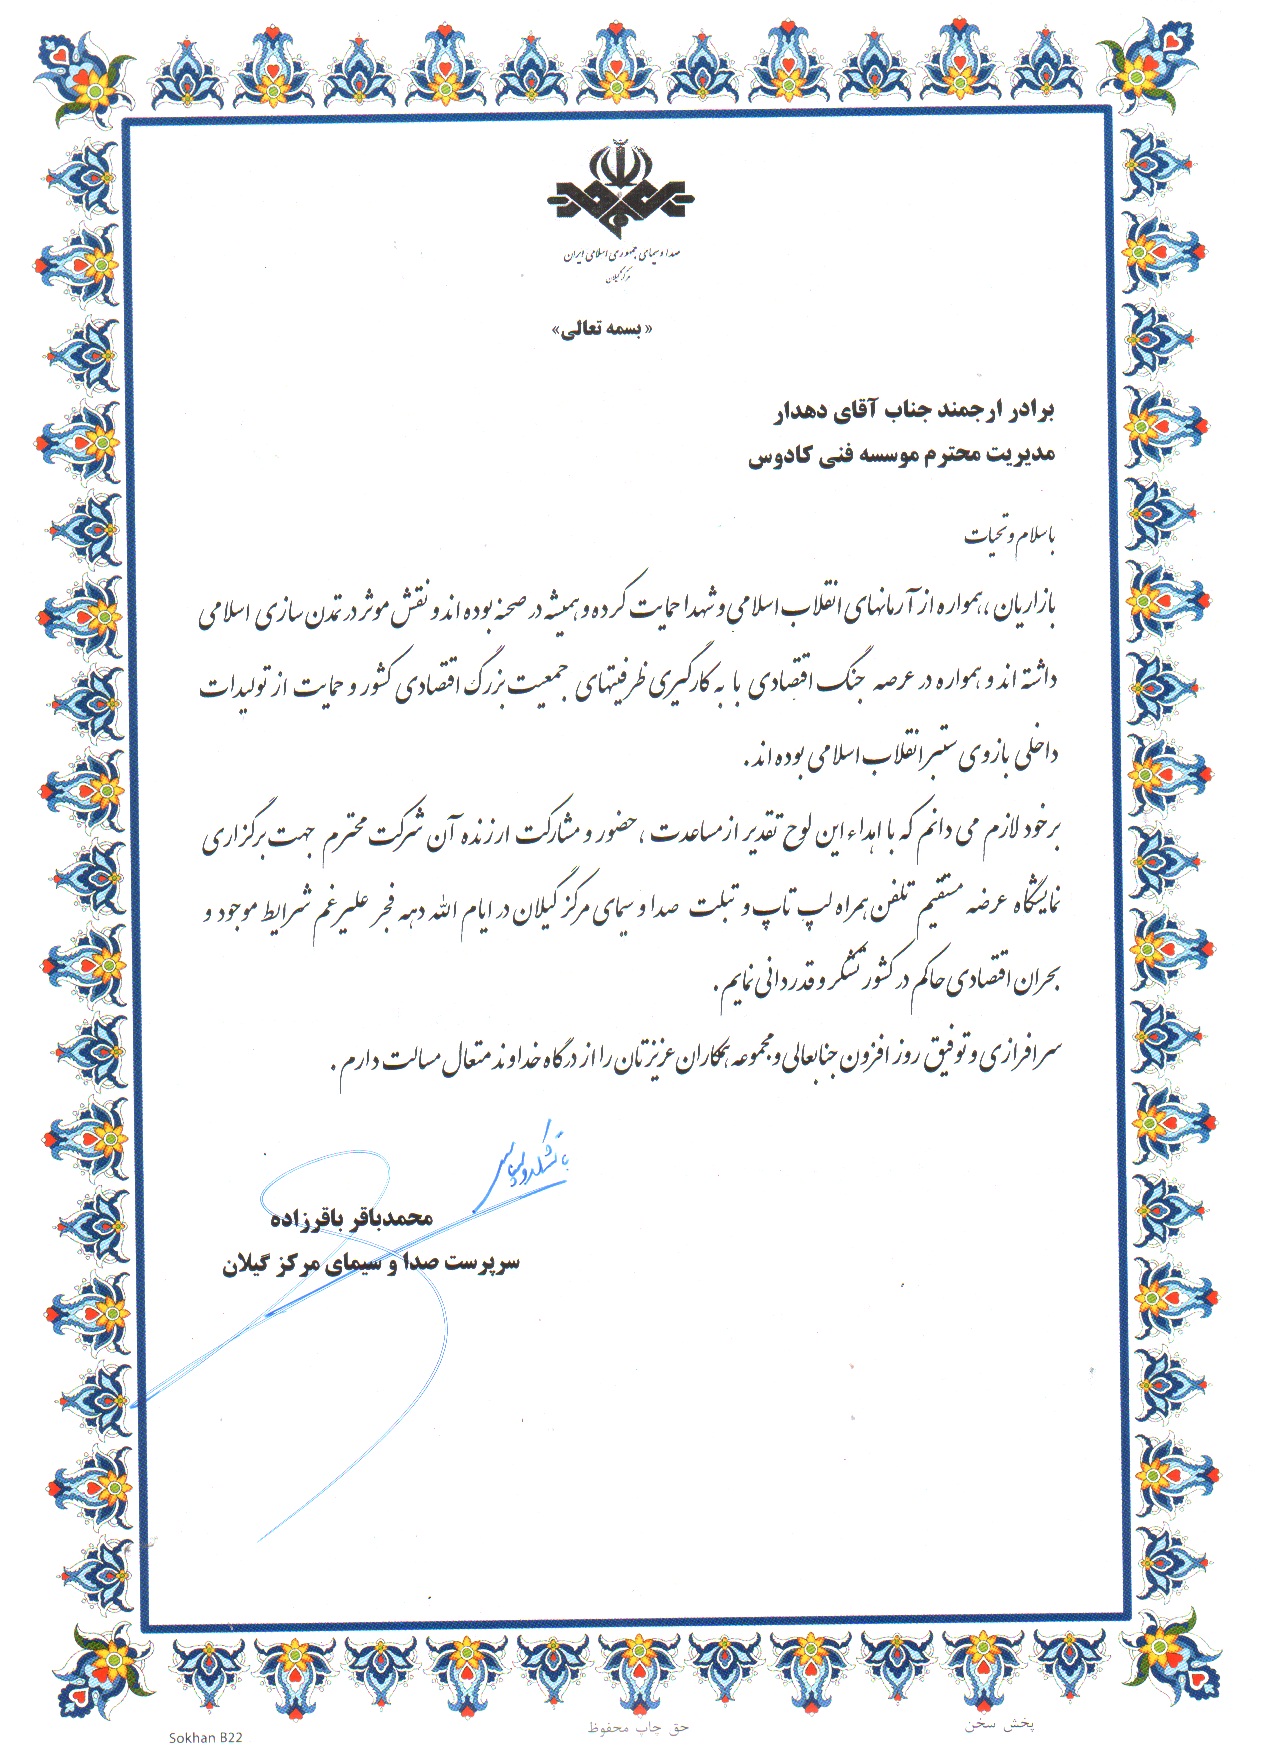 صدا و سیمای جمهوری اسلامی ایران
مرکز گیلان
« بسمه تعالی»
برادر ارجمند جناب آقای دهدار
مدیریت محترم موسسه فنی کادوس
باسلام و تحیات
بازاریان ، همواره از آرمانهای انقلاب اسلامی و شهدا حمایت کرده و همیشه در صحنه بوده اند و نقش موثر در تمدن سازی اسلامی
داشته اند و همواره در عرصه جنگ اقتصادی با به کارگیری ظرفیتهای جمعیت بزرگ اقتصادی کشور و حمایت از تولیدات
داخلی بازوی ستبر انقلاب اسلامی بوده اند .
برخود لازم می دانم که با اهداء این لوح تقدیر از مساعدت ، حضور و مشارکت ارزنده آن شرکت محترم جهت برگزاری
نمایشگاه عرضه مستقیم تلفن همراه لپ تاپ و تبلت صدا و سیمای مرکز گیلان در ایام الله دهه فجر علیرغم شرایط موجود و
بحران اقتصادی حاکم در کشور تشکر و قدردانی نمایم .
سرافرازی و توفیق روز افزون جنابعالی و مجموعه همکاران عزیزتان را از درگاه خداوند متعال مسالت دارم .
با تشکر و سپاس
محمدباقر باقرزاده
سرپرست صدا و سیمای مرکز گیلان
پخش سخن
حق چاپ محفوظ
Sokhan B22